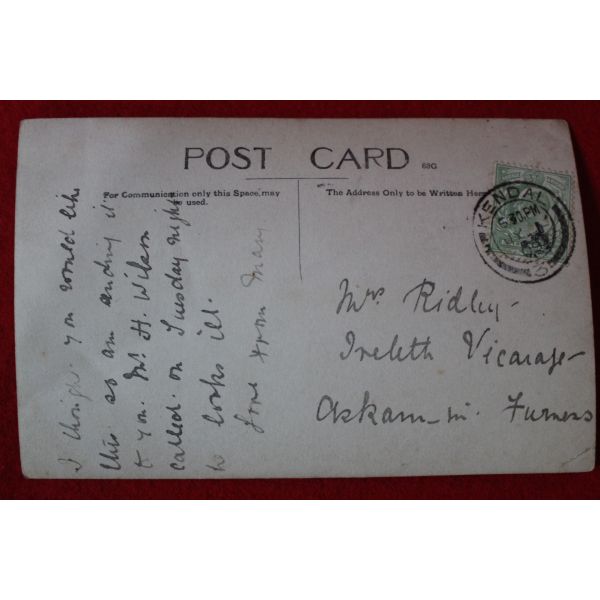 POST CARD
68G
For Communication only this Space may
be used.
The Address Only to be Written Here
KENDAL
5.30 PM
I thought you would like
this so am sending it
to you. Mr H. Wilson
called on Tuesday night
he looks ill.
Love from Mary
Mrs Ridley
Ireleth Vicarage
Askam-in-Furness